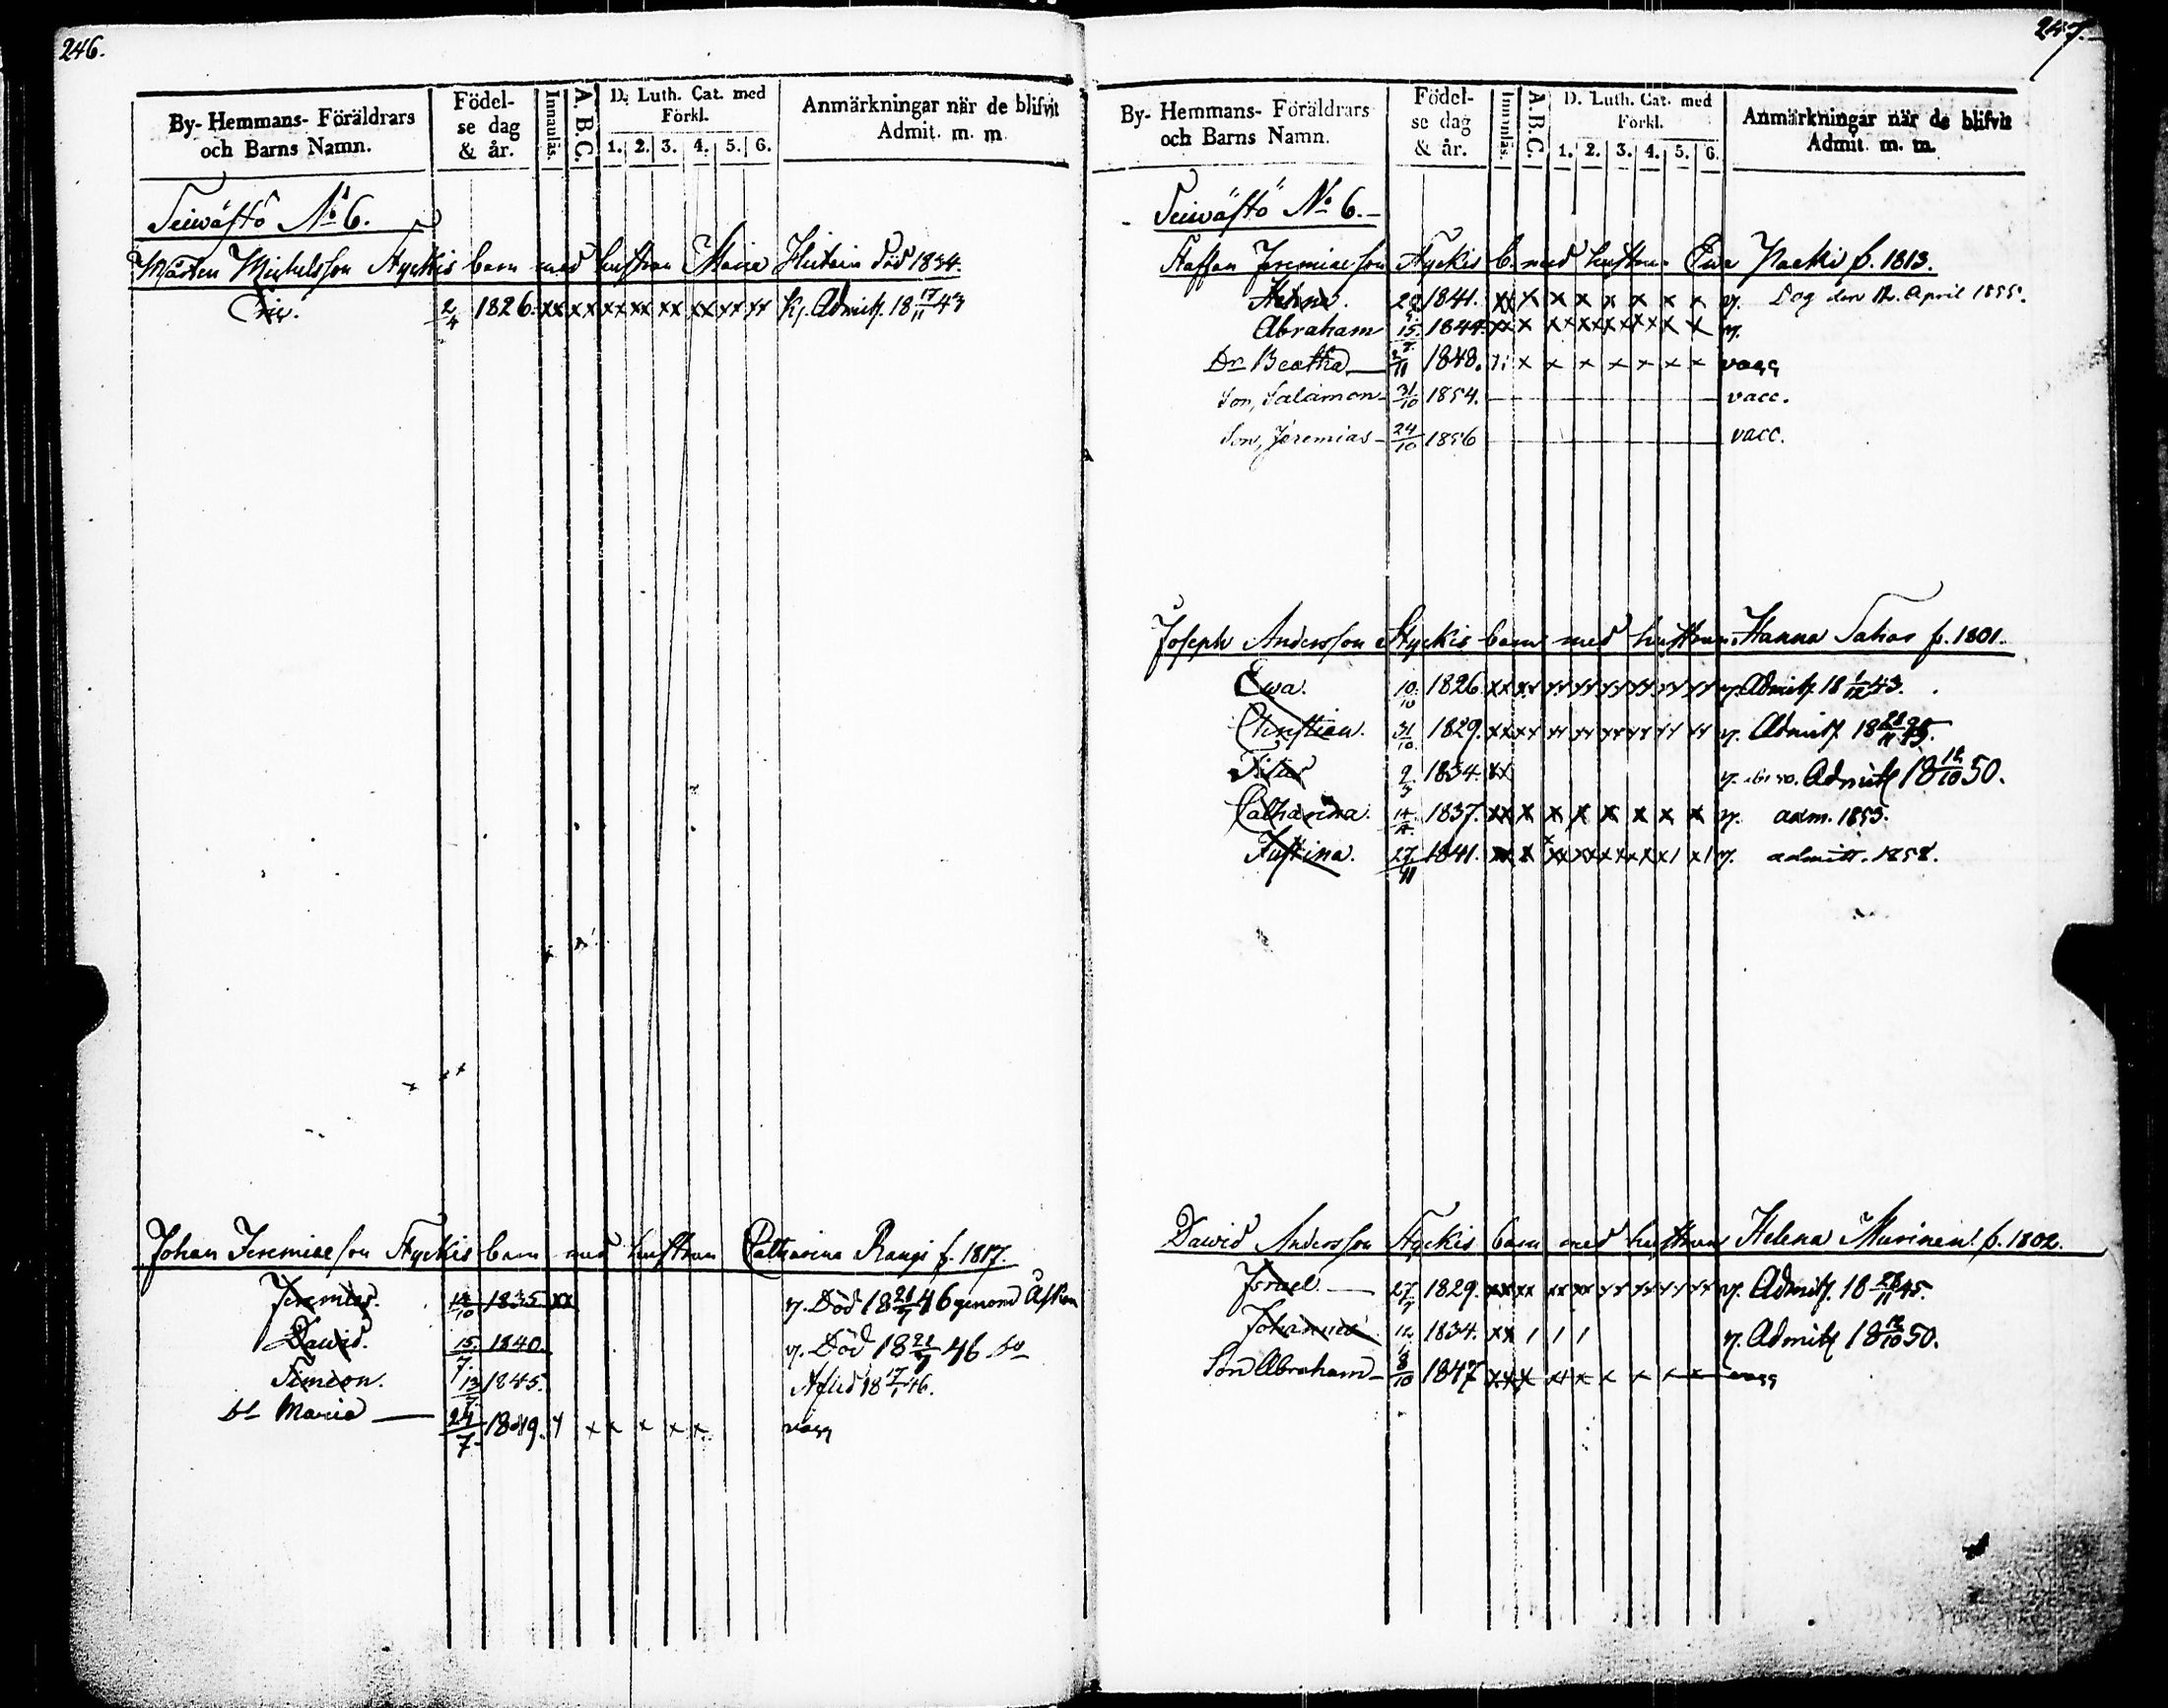 246.
By- Hemmans- Föräldrars och Barns Namn.
Födel- se dag & år.
Innanläs.
A. B. C.
D. Luth. Cat. med Förkl.
1. 2. 3. 4. 5. 6.
Anmärkningar när de blifvit Admit. m. m.
Seiwästö No 6.
Mårten Michelsson Styckis barn med hustrun Maria död 1834.
2/4 1826. xx xx xx xx xx xx xx xx Admitt. 18 17/11 43
Johan Jeremiaesson Styckis barn med hustrun Catharina Rangi f. 1817.
Jeremias. 14/10 1835 xx Död 18 21/7 46 genom
Dawid. 15/7. 1840 Död 18 21/7 46
Simeon. 13/7 1845. Afled 18 17/1 46.
Maria 24/7 1849. x x x x x x vacc
247.
By- Hemmans- Föräldrars och Barns Namn.
Födel- se dag & år.
Innanläs.
A. B. C.
D. Luth. Cat. med Förkl.
1. 2. 3. 4. 5. 6.
Anmärkningar när de blifvit Admit. m. m.
Seiwästö No 6.
Staffan Jeremiaesson Styckis b. med hustrun Ewa Packi f. 1813.
Helena. 1841. xx x x x x x x x Dog den 12. April 1855.
Abraham 15/7. 1844. xx x x xx xx xx xx x x
Dr Beatha 1848. x x x x x x x vacc
Son, Salamon 31/10 1854. vacc.
Son, Jeremias 24/10 1856 vacc.
Joseph Andersson Styckis barn med hustrun Hanna f. 1801.
Ewa. 10/10 1826. xx xx xx xx xx xx xx xx Admitt. 18 1/12 43.
Christian. 31/10. 1829. xx xx xx xx xx xx xx xx Admitt 18 45.
1834. xx Admitt 18 12/10 50.
Catharina. 1837. xx x x x x x x x adm. 1853.
Justina. 27/11 1841. admitt. 1858.
Dawid Andersson Styckis barn med hustrun Helena Murinen f. 1802.
Israel. 1829. xx xx xx xx xx xx xx xx Admitt. 18 45.
Johannes 1834. xx / / / Admitt 18 12/10 50.
Son Abraham 8/10 1847 vacc